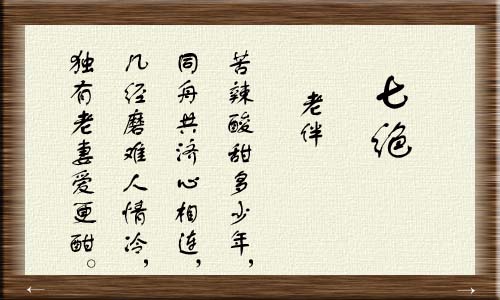 七绝
老伴
苦辣酸甜多少年，
同舟共济心相连，
几经磨难人情冷，
独有老妻爱更酣。